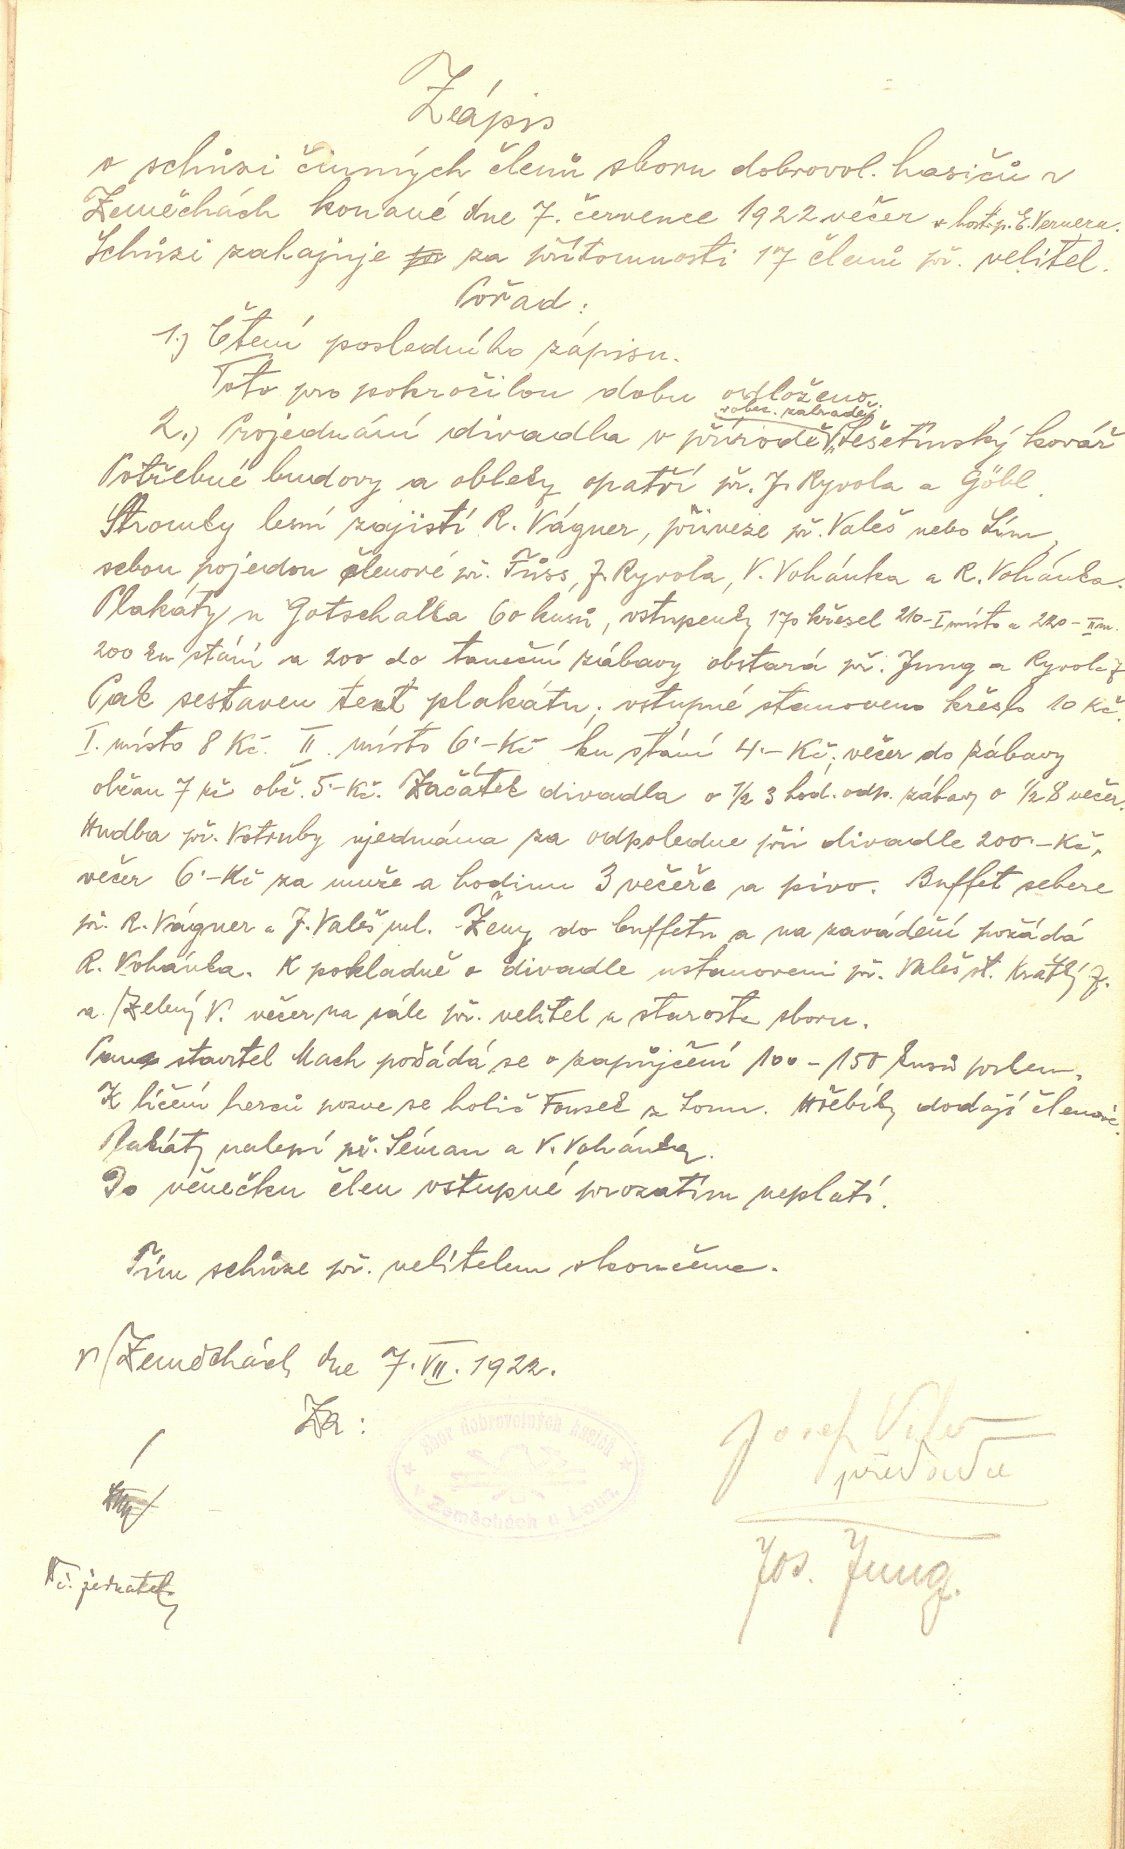 Zápis
o schůzi činných členů sboru dobrovol. hasičů v
Zeměchách konané dne 7. července 1922 večer v host. p. E. Vernera.
Schůzi zahajuje za přítomnosti 17 členů př. velitel.
Pořad:
1.) Čtení posledního zápisu.
Toto pro pokročilou dobu odloženo.
v obec. zahradě
2.) Projednání divadla v přírodě „Tešetínský kovář
Potřebné budovy a obleky opatří př. J. Ryvola a Göbl.
Stromky lesní zajistí R. Vágner, přiveze př. Valeš nebo
sebou pojedou členové př. Füss, J. Ryvola, V. Vohánka a R. Vohánka.
Plakáty u Gotschalka 60 kusů, vstupenky 170 křesel 210 – I místo a 220 – II m.
200 ku stání a 200 do taneční zábavy obstará př. Jung a Ryvola J
Pak sestaven text plakátu; vstupné stanoveno křeslo 10 Kč.
I. místo 8 Kč. II. místo 6·– Kč ku stání 4·– Kč; večer do zábavy
občan 7 kč obč. 5·– Kč. Začátek divadla o ½ 3 hod. odp. zábavy o ½ 8 večer.
Hudba př. Kotruby ujednána za odpoledne při divadle 200·– Kč,
večer 6·– Kč za muže a hodinu 3 večeře a pivo. Buffet sebere
př. R. Vágner a J. Valeš ml. Ženy do buffetu a na zavádění požádá
R. Vohánka. K pokladně o divadle ustanoveni př. Valeš st. Krátký J.
a Zelený V. večer na sále př. velitel a starosta sboru.
Pan stavitel Mach požádá se o zapůjčení 100 – 150 kusů prken.
K líčení herců pozve se holič Fousek z Loun. Hřebíky dodají členové.
Plakáty nalepí př. Léman a V. Vohánka.
Do věnečku člen vstupné prozatím neplatí.
Tím schůze př. velitelem skončena.
V Zeměchách dne 7. VII. 1922.
Za:
Sbor dobrovolných hasičů
v Zeměchách u Loun.
Josef
předseda
Jos. Jung.
jednatel